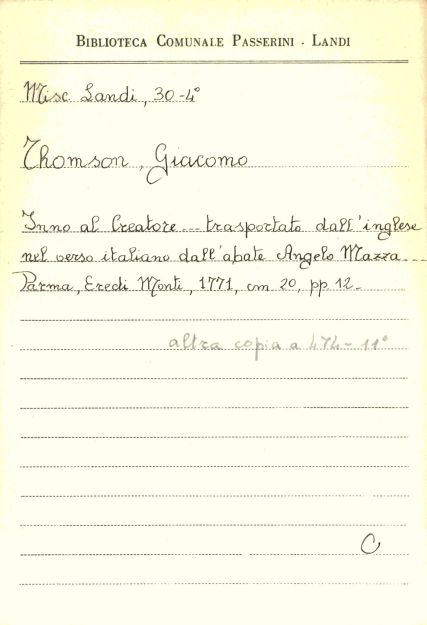 BIBLIOTECA COMUNALE PASSERINI - LANDI
Misc Landi, 30-4°
Thomson, Giacomo
Inno al Creatore... trasportato dall'inglese
nel verso italiano dall'abate Angelo Mazza...
Parma, Eredi Monti, 1771, cm 20, pp 12.
altra copia a 474-11°
C